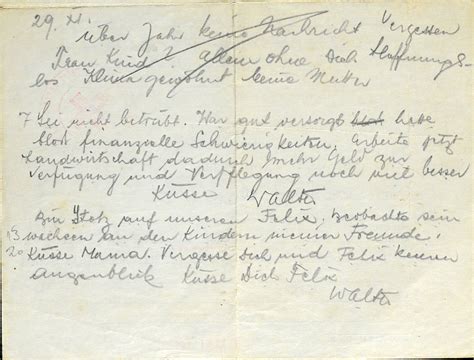 29. XI.
Über Jahr keine Nachricht Vergessen
Frau Kind? Allein ohne Dich Hoffnungs-
los Klima gewöhnt keine Mutter
7 Sei nicht betrübt. War gut versorgt habe
blos finanzielle Schwierigkeiten, Arbeite jetzt
Landwirtschaft dadurch mehr Geld zur
Verfügung und Verpflegung noch viel besser
Küsse Walter
Bin Stolz auf unseren Felix, beobachte sein
13 wachsen an den Kindern meiner Freunde.
20 Küsse Mama. Vergesse Dich und Felix keinen
augenblick Küsse Dich Felix
Walter